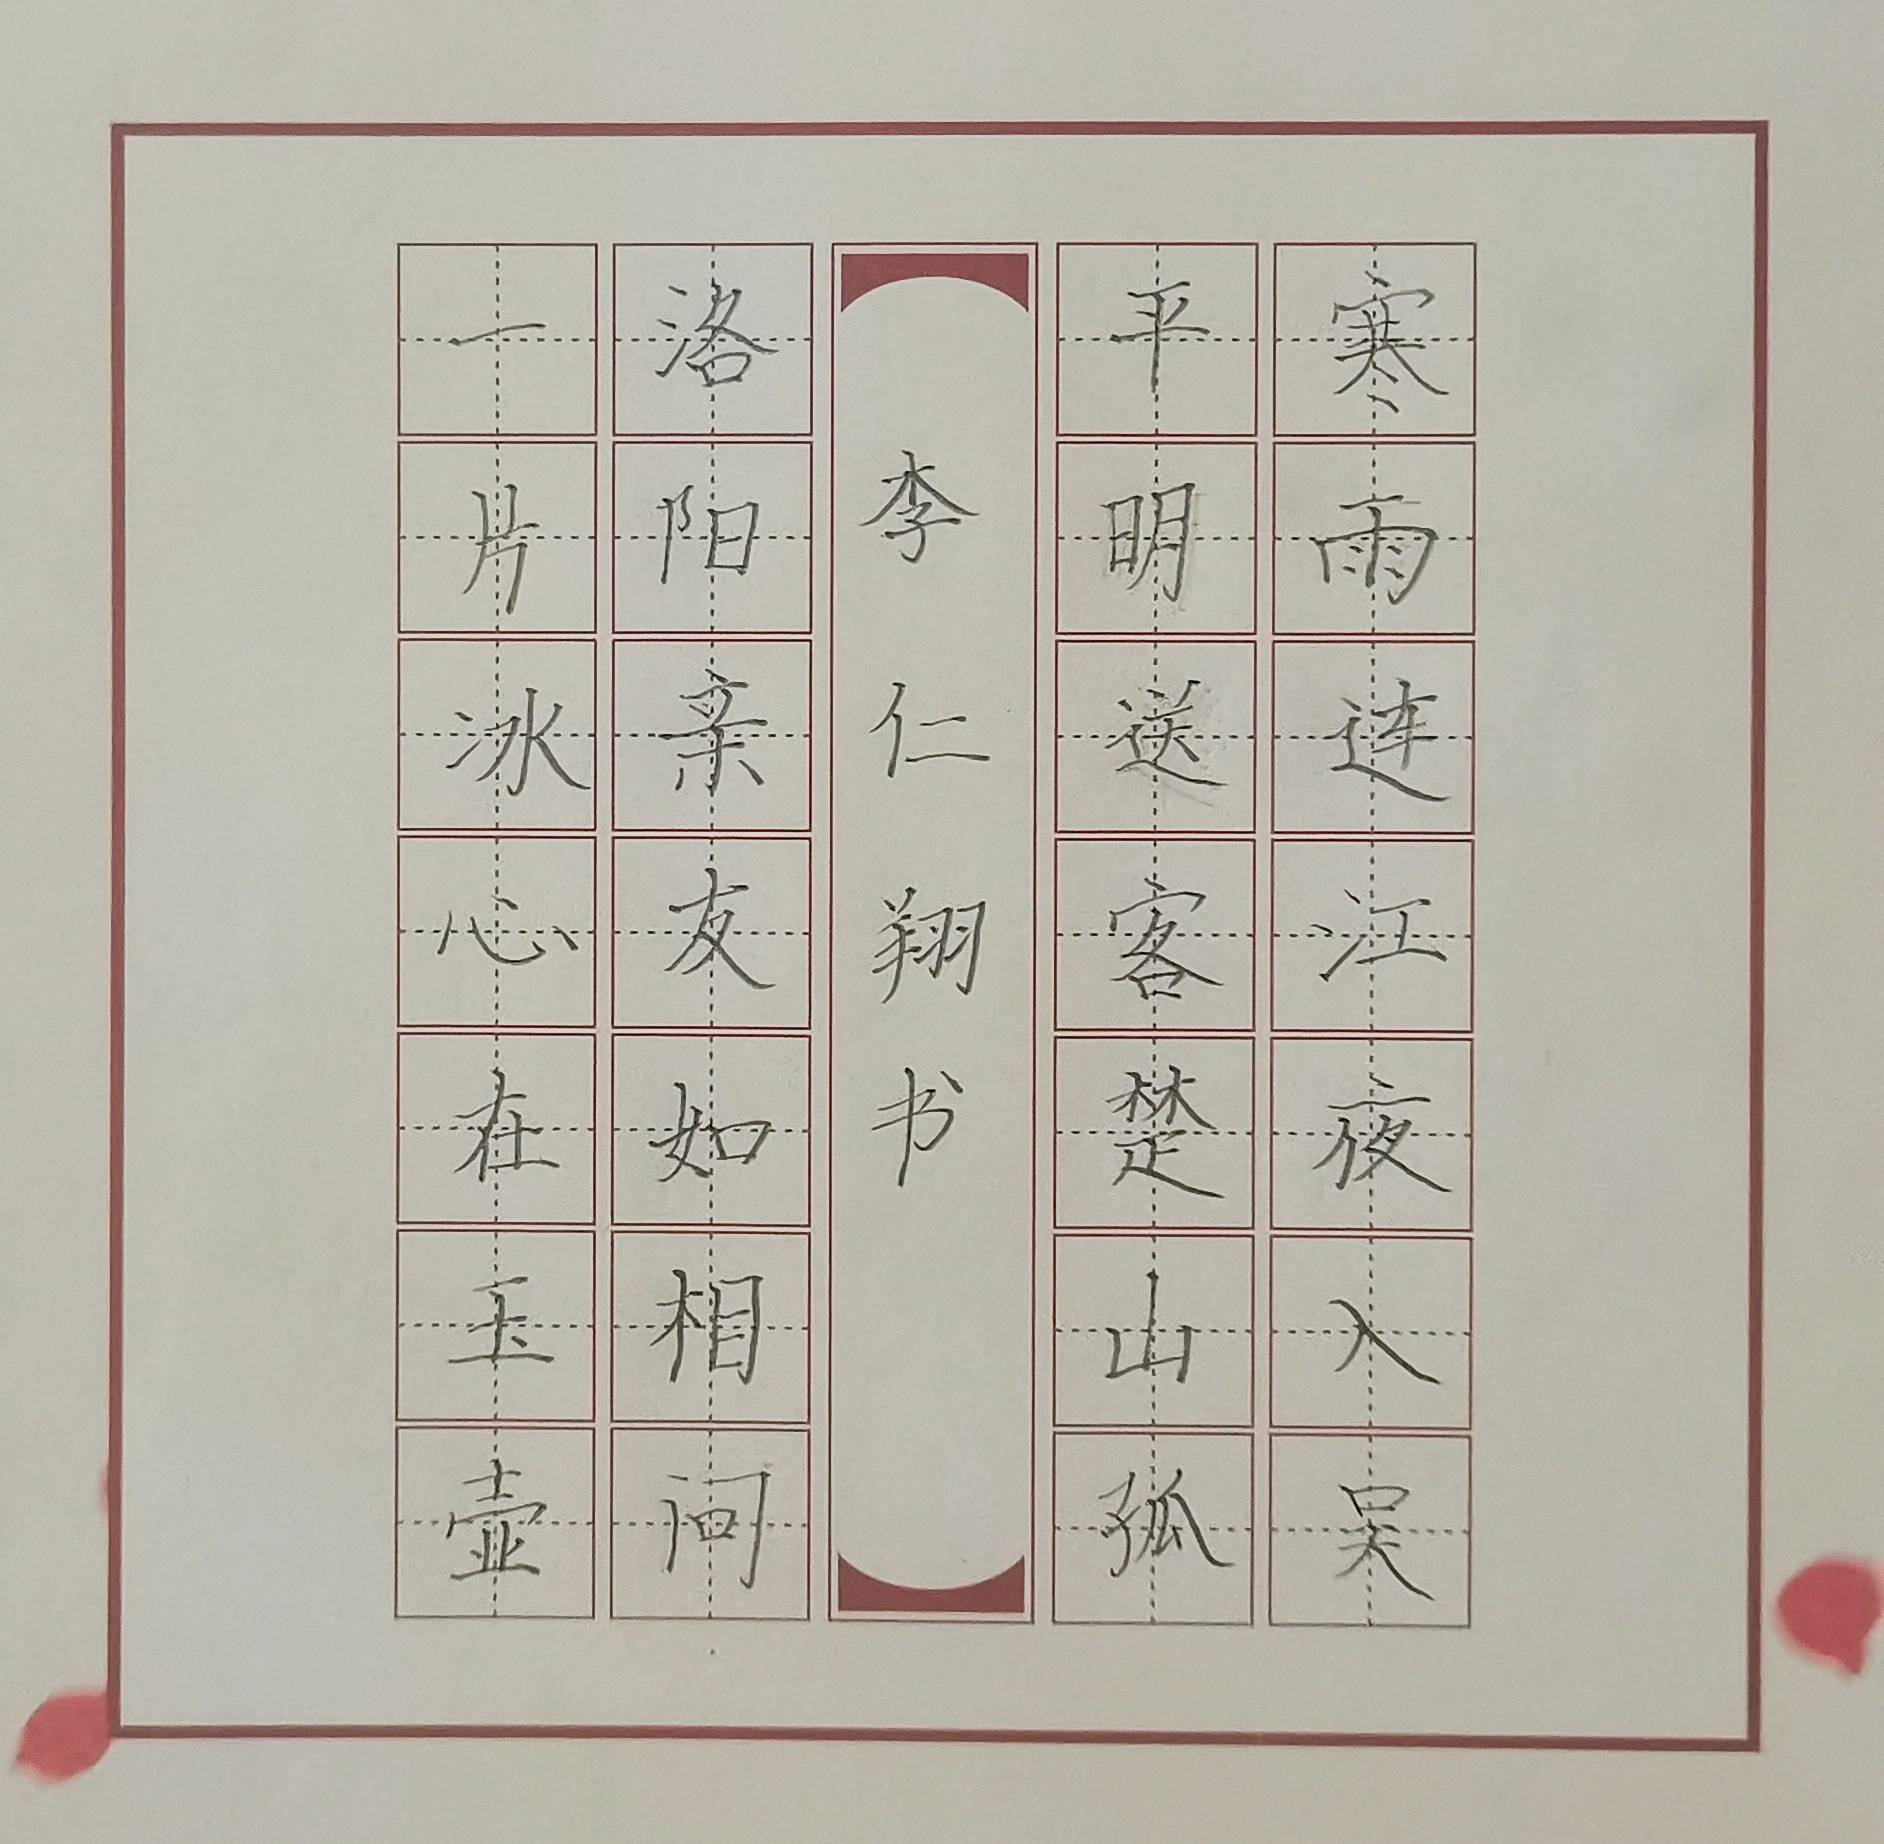 寒雨连江夜入吴
平明送客楚山孤
李仁翔书
洛阳亲友如相问
一片冰心在玉壶